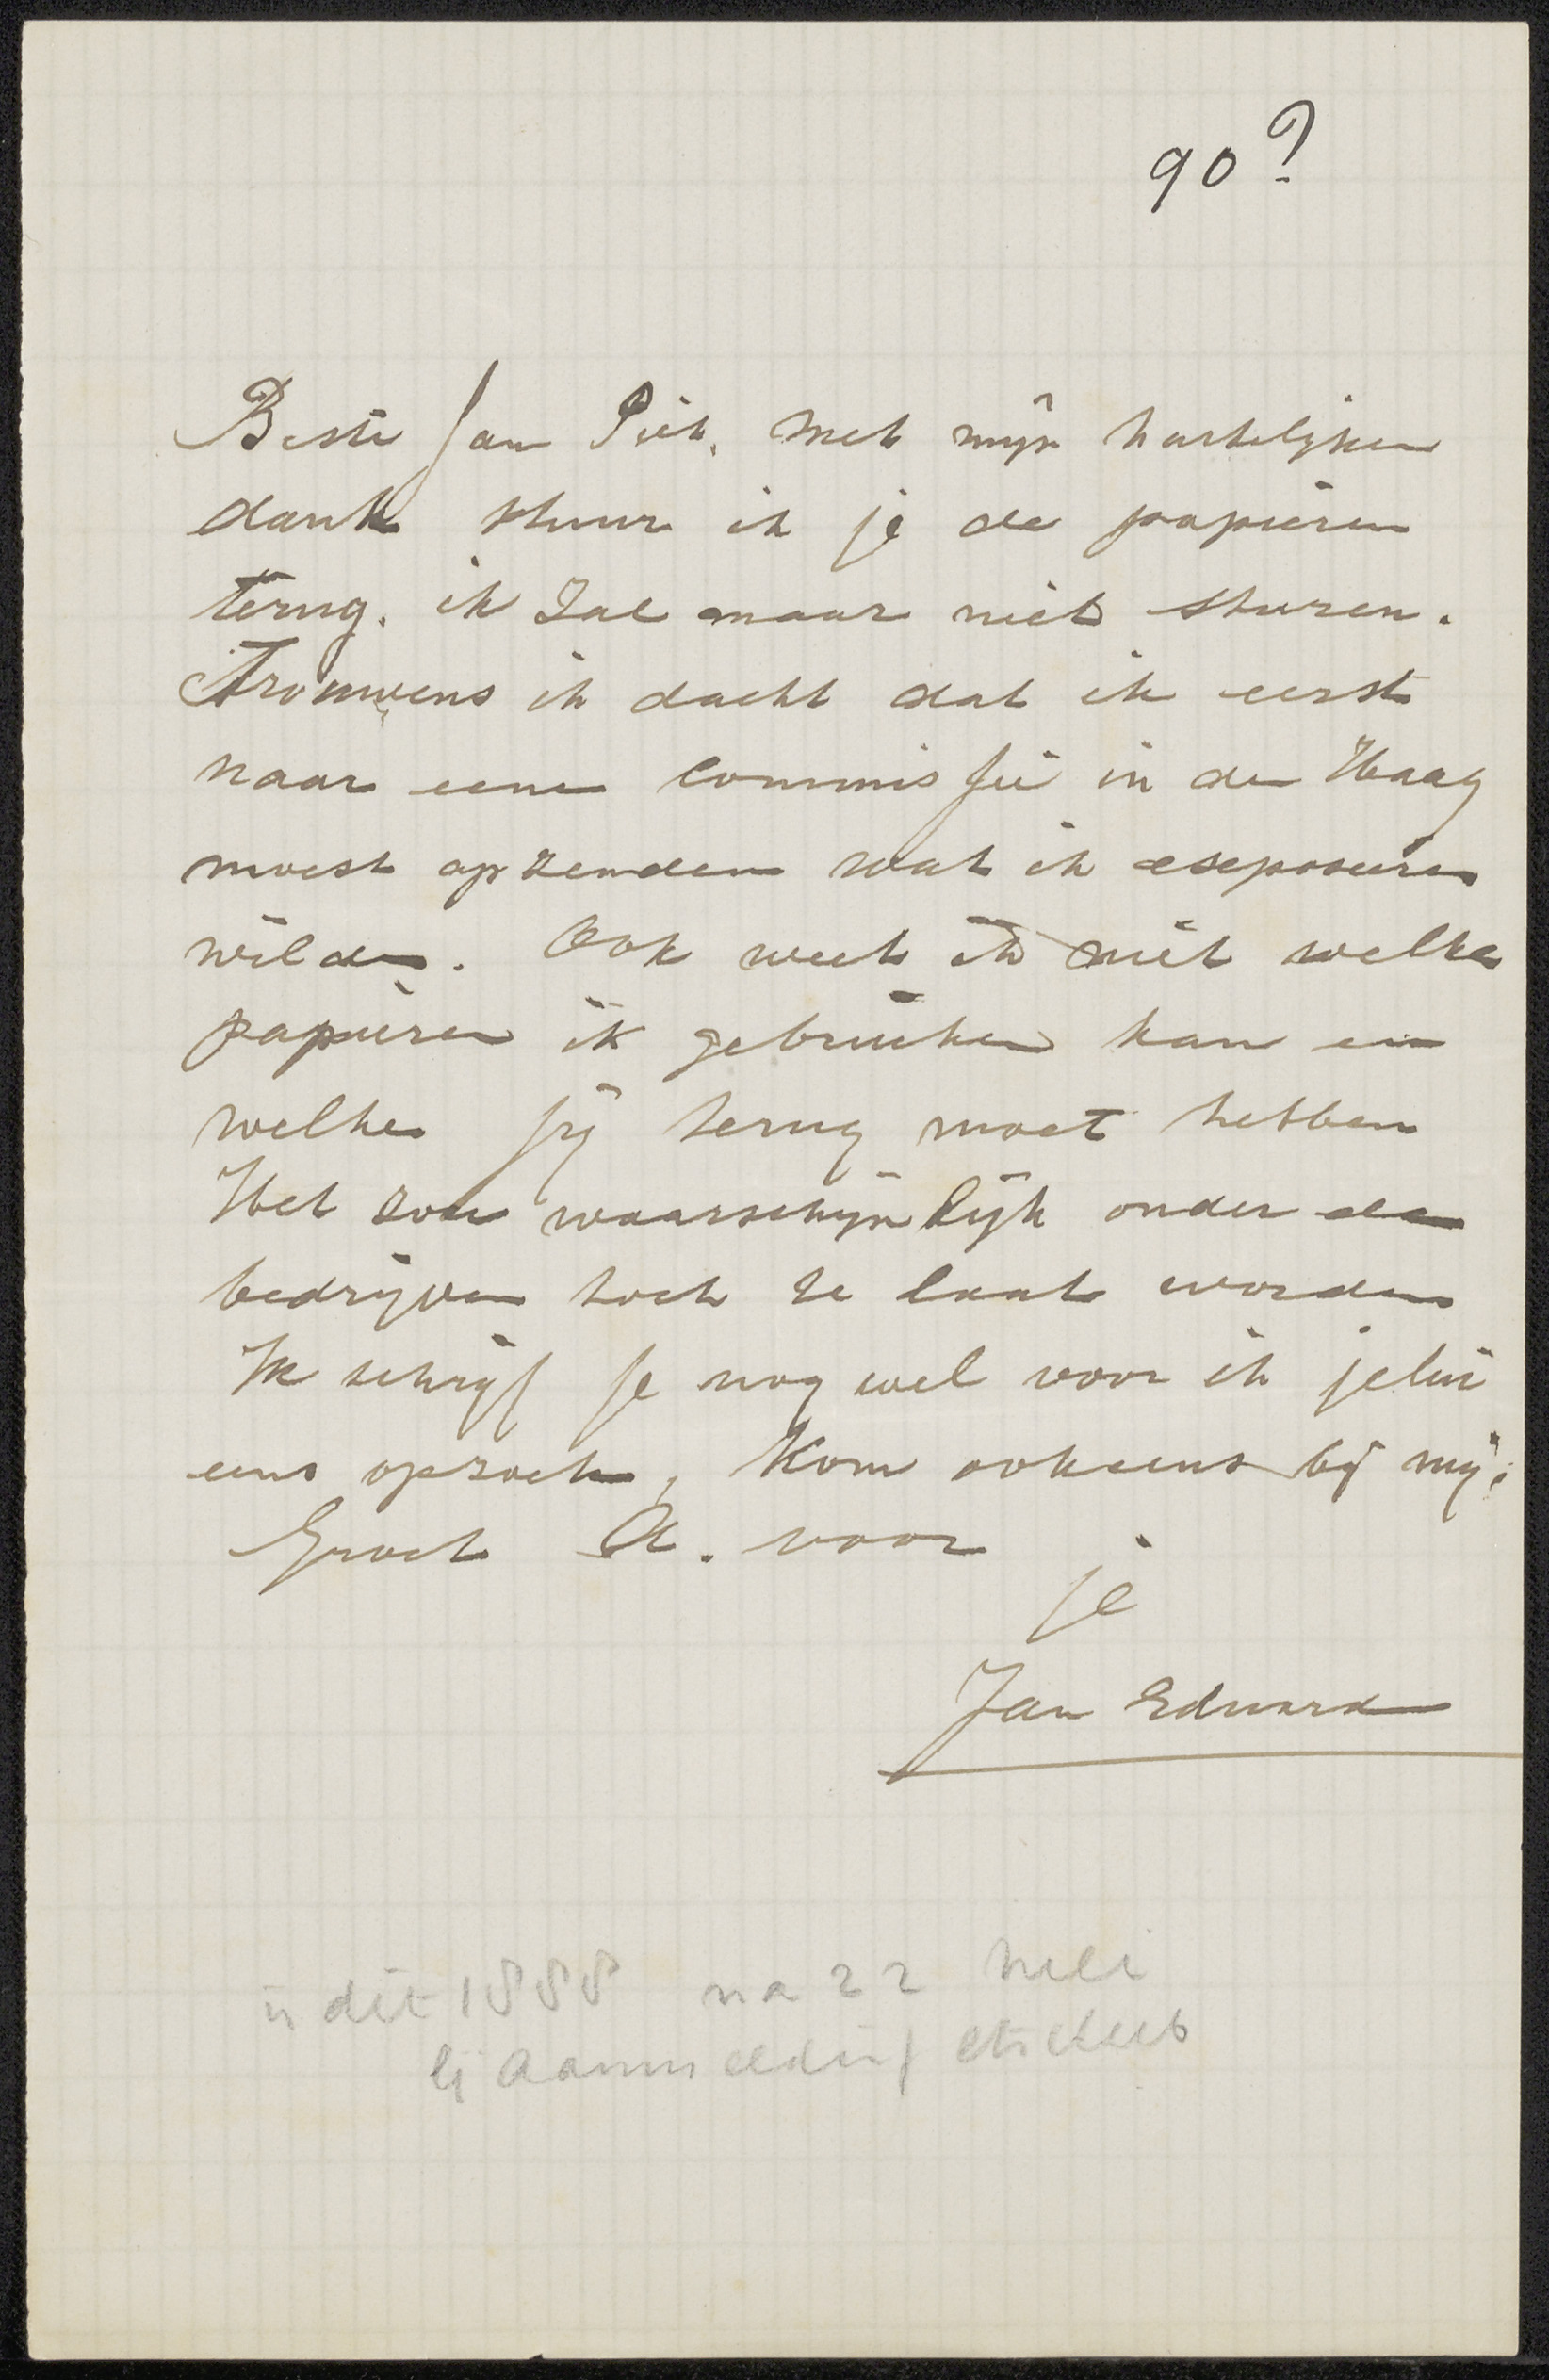 90?
Beste Jan Piet, Met mijn hartelijken
dank stuur ik je de papieren
terug. ik zal maar niet sturen.
Trouwens ik dacht dat ik eerst
naar eene commissie in den Haag
moest opzenden wat ik exposeeren
wilde. Ook weet ik niet welke
papieren ik gebruiken kan en
welke jij terug moet hebben
Het zou waarschijnlijk onder de
bedrijven toch te laat worden
Ik schrijf je nog wel voor ik jelui
eens opzoek, Kom ook eens bij mij.
Groet A. voor
je
Jan Eduard
is dit 1888 na 22
bij aanmelding